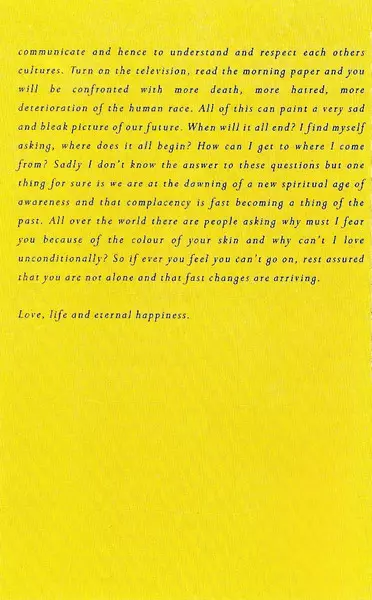 communicate and hence to understand and respect each others
cultures. Turn on the television, read the morning paper and you
will be confronted with more death, more hatred, more
deterioration of the human race. All of this can paint a very sad
and bleak picture of our future. When will it all end? I find myself
asking, where does it all begin? How can I get to where I come
from? Sadly I don't know the answer to these questions but one
thing for sure is we are at the dawning of a new spiritual age of
awareness and that complacency is fast becoming a thing of the
past. All over the world there are people asking why must I fear
you because of the colour of your skin and why can't I love
unconditionally? So if ever you feel you can't go on, rest assured
that you are not alone and that fast changes are arriving.
Love, life and eternal happiness.